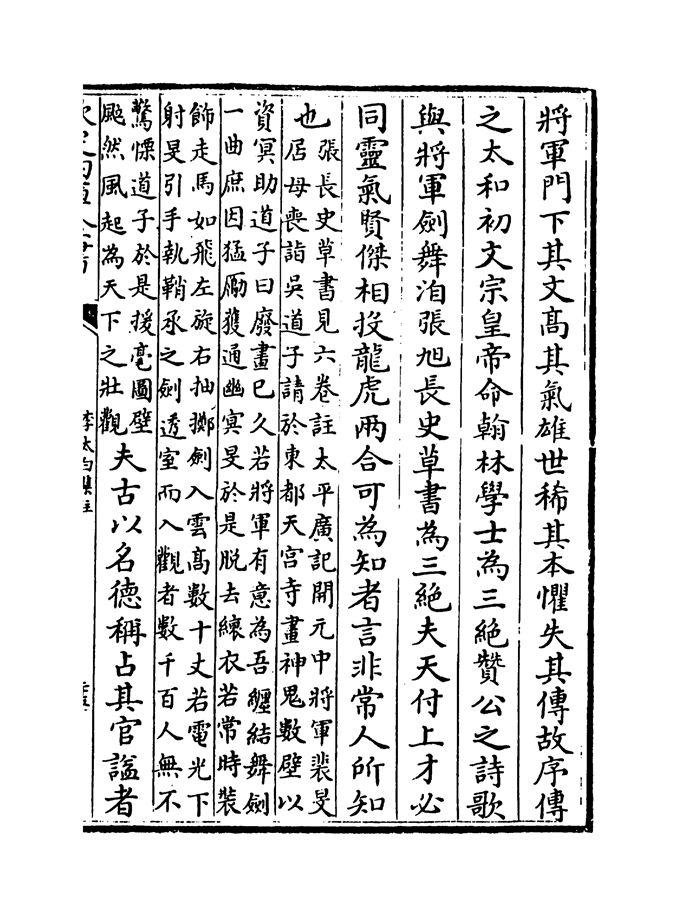 將軍門下其文高其氣雄世稀其本懼失其傳故序傳
之太和初文宗皇帝命翰林學士為三絕贊公之詩歌
與將軍劍舞洎張旭長史草書為三絕夫天付上才必
同靈氣賢傑相投龍虎兩合可為知者言非常人所知
也
張長史草書見六卷註太平廣記開元中將軍裴旻
居母喪詣吳道子請於東都天宫寺畫神鬼數壁以
資冥助道子曰廢畫已久若將軍有意為吾纒結舞劍
一曲庶因猛勵獲通幽冥旻於是脱去縗衣若常時裝
飾走馬如飛左旋右抽擲劍入雲高數十丈若電光下
射旻引手執鞘承之劍透室而入觀者數千百人無不
驚慄道子於是援毫圖壁
颰然風起為天下之壯觀
夫古以名德稱占其官謚者
李太白集注